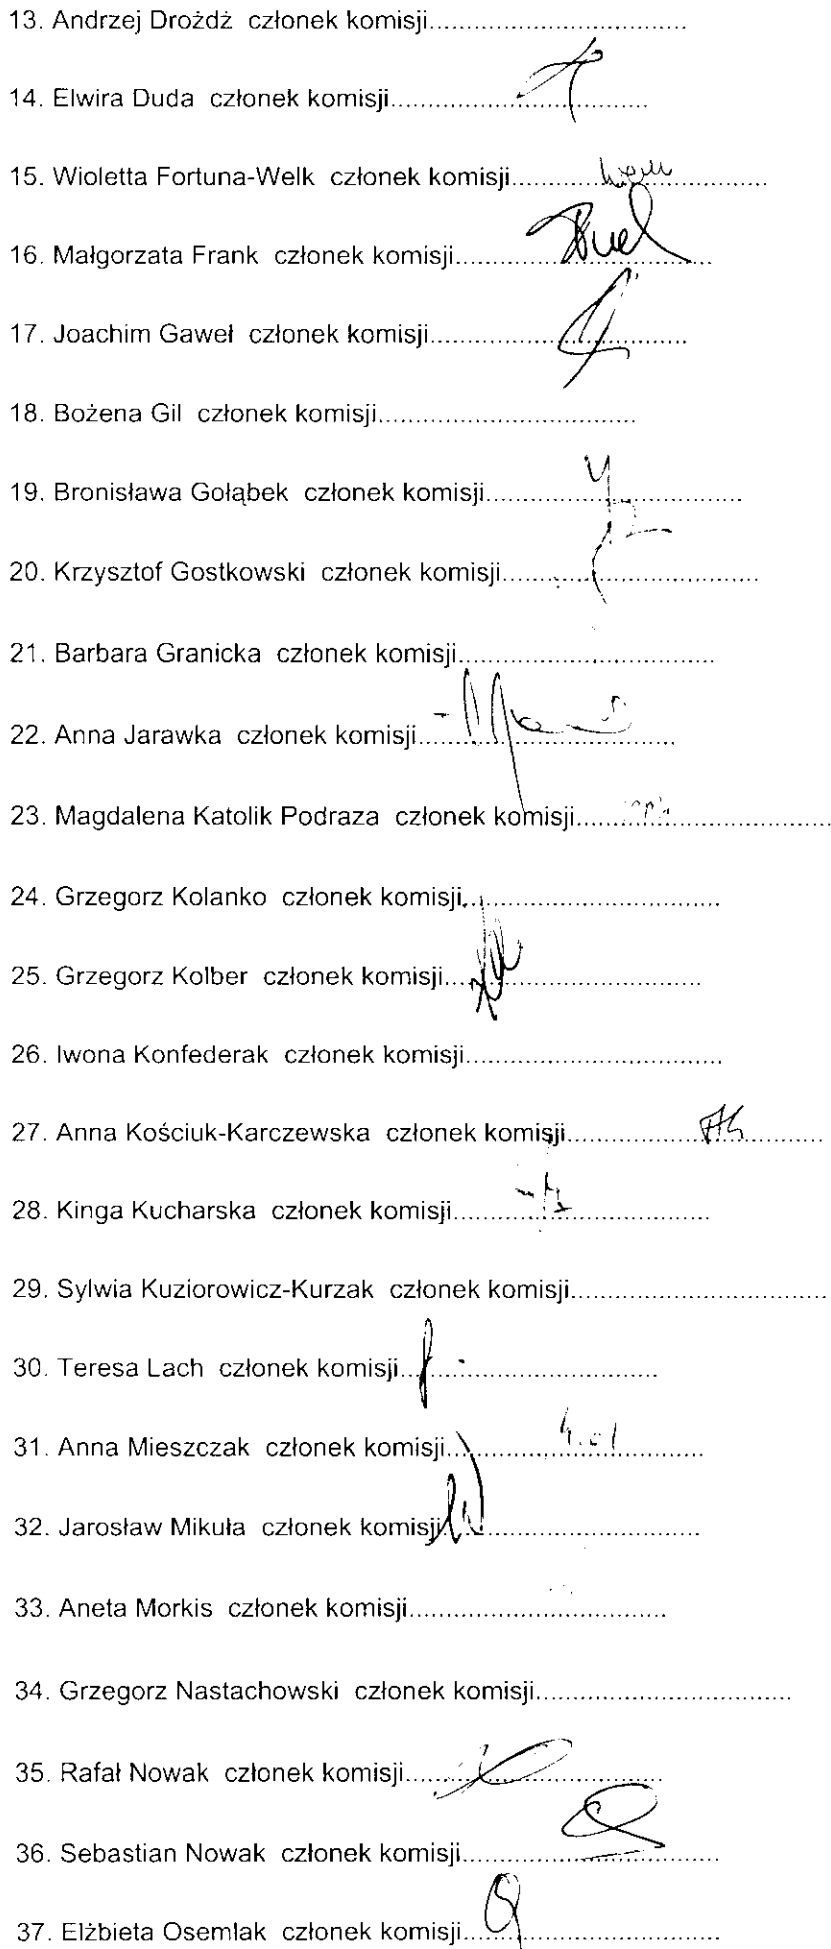 13. Andrzej Drożdż członek komisji............................................
14. Elwira Duda członek komisji............................................
15. Wioletta Fortuna-Welk członek komisji............................................
16. Małgorzata Frank członek komisji............................................
17. Joachim Gaweł członek komisji............................................
18. Bożena Gil członek komisji............................................
19. Bronisława Gołąbek członek komisji............................................
20. Krzysztof Gostkowski członek komisji............................................
21. Barbara Granicka członek komisji............................................
22. Anna Jarawka członek komisji............................................
23. Magdalena Katolik Podraza członek komisji............................................
24. Grzegorz Kolanko członek komisji............................................
25. Grzegorz Kolber członek komisji............................................
26. Iwona Konfederak członek komisji............................................
27. Anna Kościuk-Karczewska członek komisji............................................
28. Kinga Kucharska członek komisji............................................
29. Sylwia Kuziorowicz-Kurzak członek komisji............................................
30. Teresa Lach członek komisji............................................
31. Anna Mieszczak członek komisji............................................
32. Jarosław Mikuła członek komisji............................................
33. Aneta Morkis członek komisji............................................
34. Grzegorz Nastachowski członek komisji............................................
35. Rafał Nowak członek komisji............................................
36. Sebastian Nowak członek komisji............................................
37. Elżbieta Osemlak członek komisji............................................